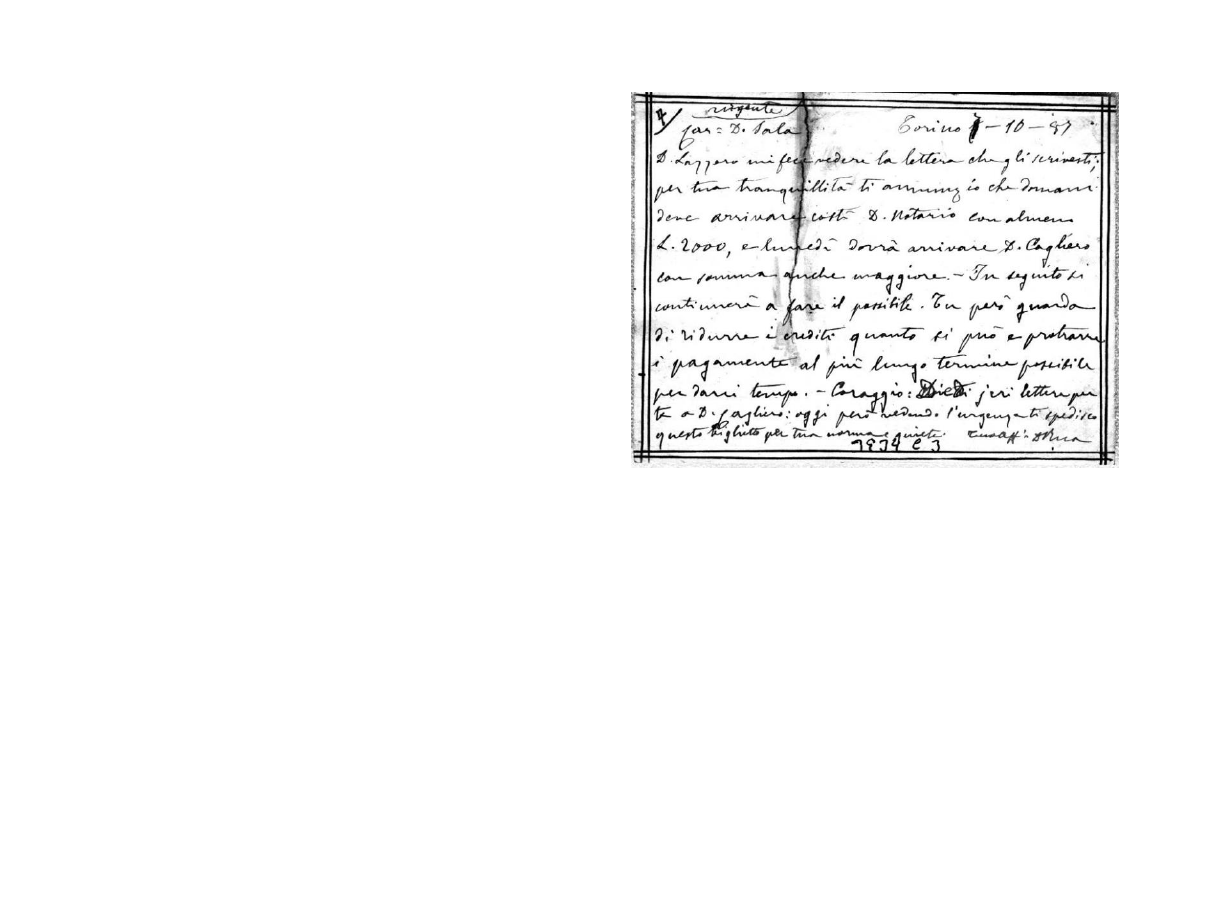 4/ urgente
Car= D. Sala Torino 7-10-87
D. Lazzero mi fece vedere la lettera che gli scrivesti;
per tua tranquillità ti annunzio che domani
deve arrivare costì D. Notario con almeno
L. 2000, e lunedì dovrà arrivare D. Cagliero
con somma anche maggiore. - In seguito si
continuerà a fare il possibile. Tu però guarda
di ridurre i crediti quanto si può e protrarre
i pagamenti al più lungo termine possibile
per darci tempo. - Coraggio: Diedi jeri lettere per
te a D. Cagliero: oggi però vedendo l'urgenza ti spedisco
questo biglietto per tua norma e quiete. Tuo aff. D Rua
3934 C 3